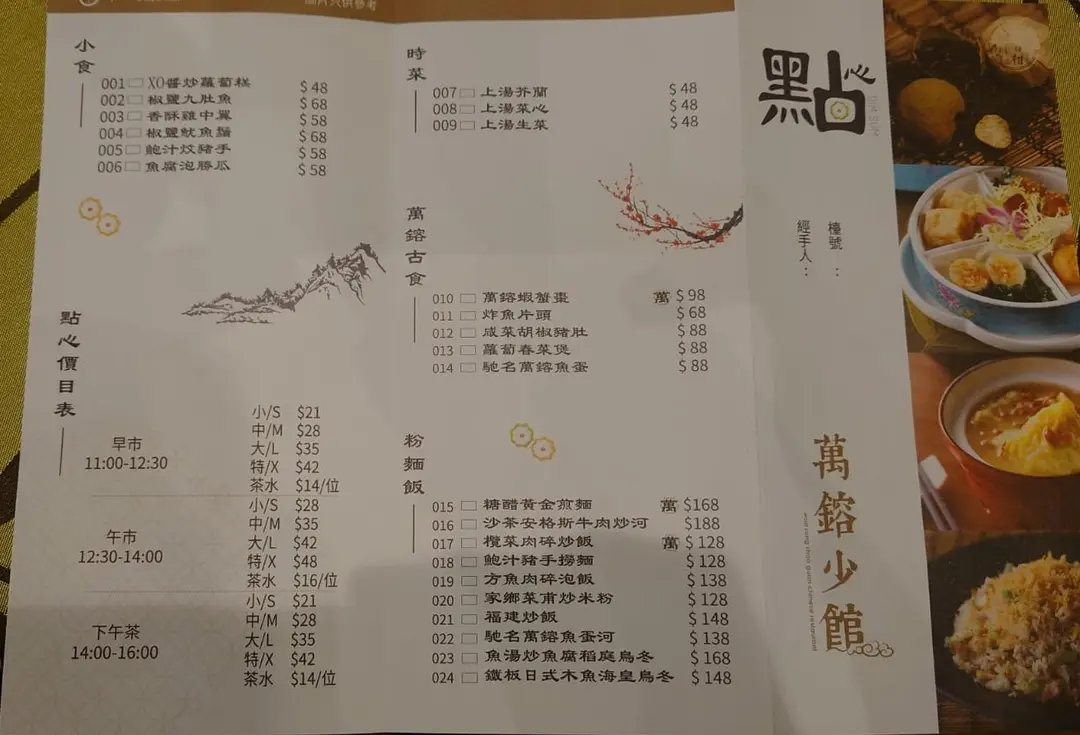 圖片只供參考
小食
001 XO醬炒蘿蔔糕 $48
002 椒鹽九肚魚 $68
003 香酥雞中翼 $58
004 椒鹽魷魚鬚 $68
005 鮑汁炆豬手 $58
006 魚腐泡勝瓜 $58
點心價目表
早市
11:00-12:30
小/S $21
中/M $28
大/L $35
特/X $42
茶水 $14/位
午市
12:30-14:00
小/S $28
中/M $35
大/L $42
特/X $48
茶水 $16/位
下午茶
14:00-16:00
小/S $21
中/M $28
大/L $35
特/X $42
茶水 $14/位
時菜
007 上湯芥蘭 $48
008 上湯菜心 $48
009 上湯生菜 $48
萬鎔古食
010 萬鎔蝦蟹棗 萬 $98
011 炸魚片頭 $68
012 咸菜胡椒豬肚 $88
013 蘿蔔春菜煲 $88
014 馳名萬鎔魚蛋 $88
粉麵飯
015 糖醋黃金煎麵 萬 $168
016 沙茶安格斯牛肉炒河 $188
017 欖菜肉碎炒飯 萬 $128
018 鮑汁豬手撈麵 $128
019 方魚肉碎泡飯 $138
020 家鄉菜甫炒米粉 $128
021 福建炒飯 $148
022 馳名萬鎔魚蛋河 $138
023 魚湯炒魚腐稻庭烏冬 $168
024 鐵板日式木魚海皇烏冬 $148
點心
DIM SUM
檯號：
經手人：
萬鎔少館